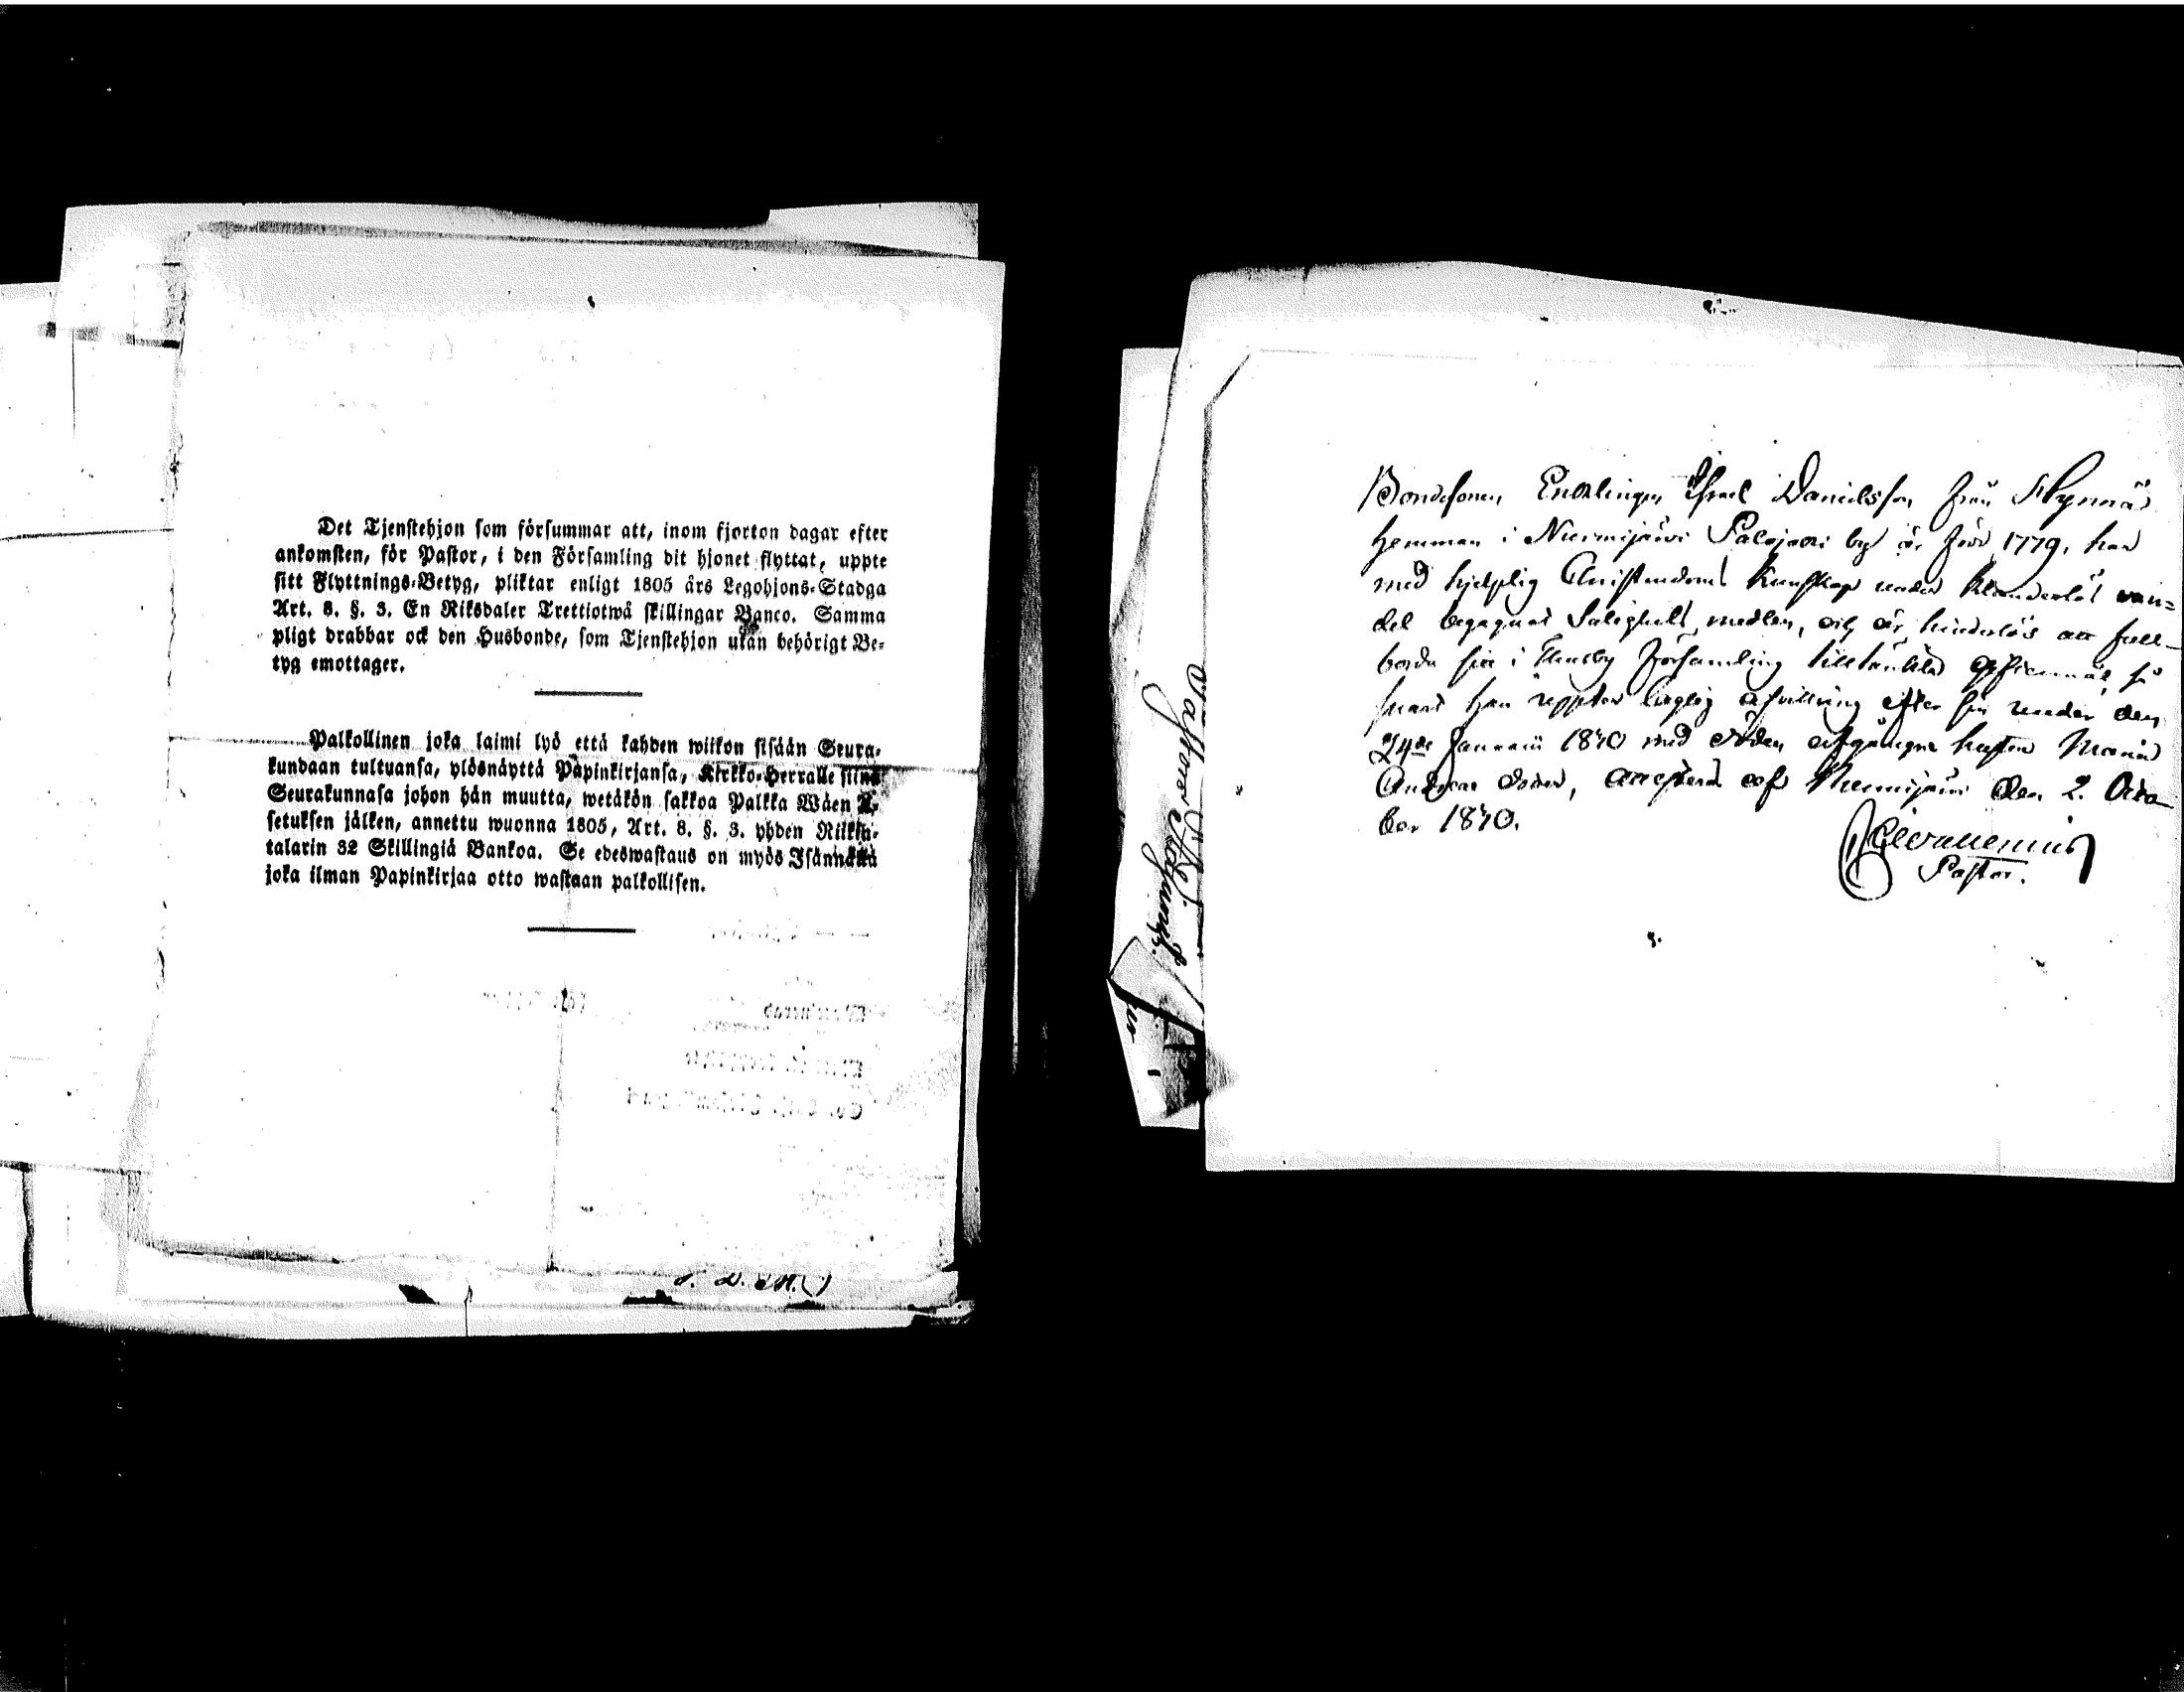 Det Tjenstehjon som försummar att, inom fjorton dagar efter
ankomsten, för Pastor, i den Församling dit hjonet flyttat, uppte
sitt Flyttnings-Betyg, pliktar enligt 1805 års Legohjons-Stadga
Art. 8. §. 3. En Riksdaler Trettiotwå skillingar Banco. Samma
pligt drabbar ock den Husbonde, som Tjenstehjon utan behörigt Be-
tyg emottager.
Palkollinen joka laimi lyö että kahden wiikon sisään Seura-
kundaan tultuansa, ylösnäyttä Papinkirjansa, Kirkko-Herralle siinä
Seurakunnasa johon hän muutta, wetäkön sakkoa Palkka Wäen A-
setuksen jälken, annettu wuonna 1805, Art. 8. §. 3. yhden Riikin-
talarin 32 Skillingiä Bankoa. Se edeswastaus on myös Isännällä
joka ilman Papinkirjaa otto wastaan palkollisen.
Bondesonen Enklingen Israel Danielsson från Skynnäs
hemman i Nurmijärvi Palojoki by är född 1779, har
med hjelplig Christendoms Kunskap under klanderlöst van-
del begagnat Salighets medlen, och är hinderlös att full-
borda sin i Thusby Församling tilltänkta äktenskap, så
snart han uppter laglig afvittring efter sin under den
24de Januarii 1840 med döden afgångne hustru Maria
dotter, attesterar af Nurmijärvi den 2. Octo-
ber 1840.
Pastor.